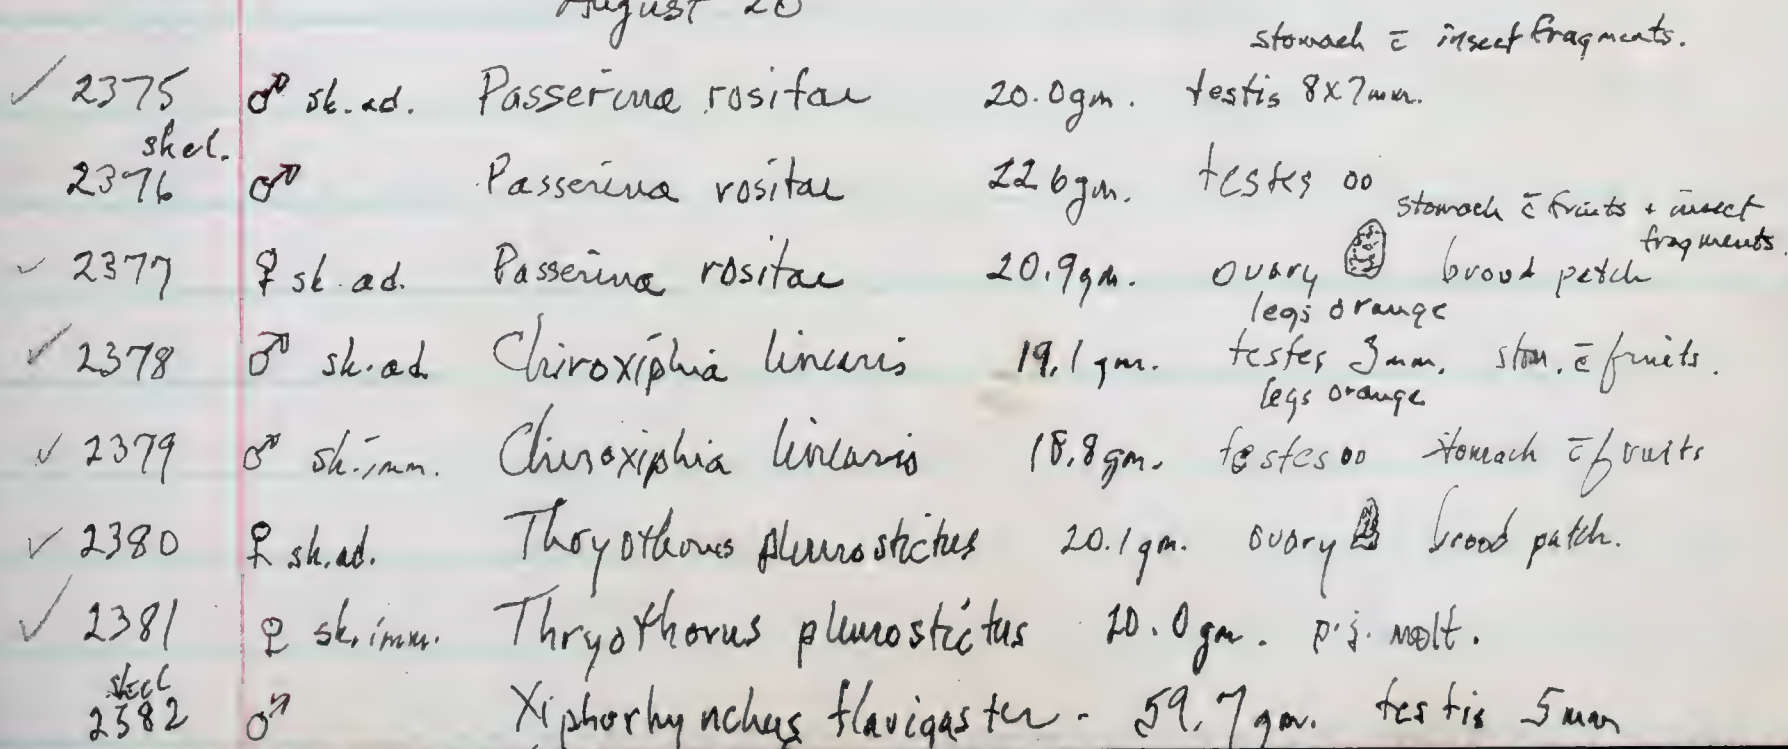 August 20
stomach c̄ insect fragments.
✓ 2375 ♂ sk. ad. Passerina rositae 20.0gm. testis 8x7mm.
skel.
2376 ♂ Passerina rositae 22.6gm. testes oo
stomach c̄ fruits + insect
fragments.
✓ 2377 ♀ sk. ad. Passerina rositae 20.9gm. ovary brood patch
legs orange
✓ 2378 ♂ sk. ad. Chiroxiphia linearis 19.1 gm. testes 3mm. stom. c̄ fruits.
legs orange
✓ 2379 ♂ sk. imm. Chiroxiphia linearis 18.8gm. testes oo stomach c̄ fruits
✓ 2380 ♀ sk. ad. Thryothorus pleurostictus 20.1gm. ovary brood patch.
✓ 2381 ♀ sk. imm. Thryothorus pleurostictus 20.0gm. p.j. molt.
skel
2382 ♂ Xiphorhynchus flavigaster - 59.7gm. testis 5mm